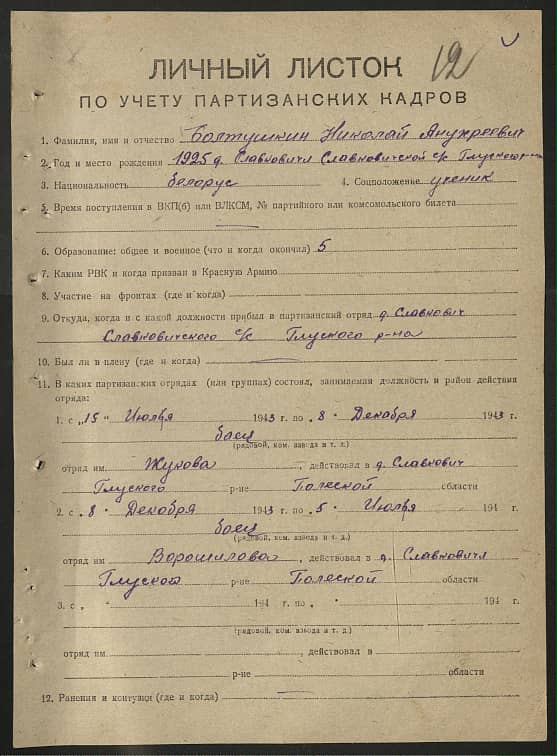 12
ЛИЧНЫЙ ЛИСТОК
ПО УЧЕТУ ПАРТИЗАНСКИХ КАДРОВ
1. Фамилия, имя и отчество Болтушкин Николай Анухреевич
2. Год и место рождения 1925 д. Славковичи Славковичской с/с Глуского р-на
3. Национальность белорус 4. Соцположение ученик
5. Время поступления в ВКП(б) или ВЛКСМ, № партийного или комсомольского билета
6. Образование: общее и военное (что и когда окончил) 5
7. Каким РВК и когда призван в Красную Армию
8. Участие на фронтах (где и когда)
9. Откуда, когда и с какой должности прибыл в партизанский отряд д. Славкович
Славковичского с/с Глуского р-на
10. Был ли в плену (где и когда)
11. В каких партизанских отрядах (или группах) состоял, занимаемая должность и район действия
отряда:
1. с „15" Июля 1943 г. по „8" Декабря 1943 г.
боец
(рядовой, ком. взвода и т. д.)
отряд им. Жукова, действовал в д. Славкович
Глуского р-не Полеской области
2. с „8" Декабря 1943 г. по „5" Июля 194 г.
боец
(рядовой, ком. взвода и т. д.)
отряд им Ворошилова, действовал в д. Славковичи
Глуского р-не Полеской области
3. с „ " 194 г. по „ " 194 г.
(рядовой, ком. взвода и т. д.)
отряд им. , действовал в
р-не области
12. Ранения и контузии (где и когда)